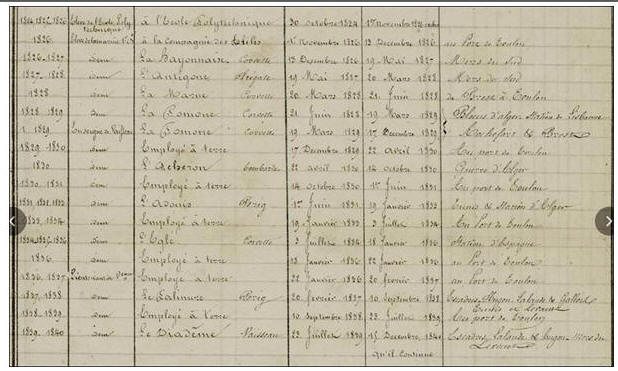 1824, 1825, 1826 Elève de l'Ecole Polytechnique à l'Ecole Polytechnique 20 octobre 1824 1er Novembre 1826
1826 Elève de la marine 1re Cl. à la Compagnie des 1er Novembre 1826 12 Décembre 1826 au Port de Toulon
1826-1827 dem La Bayonnaise Corvette 13 Décembre 1826 19 Mai 1827 Mers du Sud
1827, 1828 dem L'Antigone frégate 19 Mai 1827 20 Mars 1828 Mers du Sud
1828 dem La Marne Corvette 20 Mars 1828 21 Juin 1828 de Brest à Toulon
1828 1829 dem La Pomone Corvette 21 Juin 1828 19 Mars 1829 Blocus d'alger Station de Lisbonne
1829 Enseigne de Vaisseau La Pomone Corvette 19 Mars 1829 17 Décembre 1829 Rochefort & Brest
1829 1830 dem Employé à terre 17 Décembre 1829 22 avril 1830 Au port de Toulon
1830 dem L'Acheron Bombarde 22 avril 1830 14 octobre 1830 Guerre d'Alger
1830 1831 dem Employé à terre 14 octobre 1830 1er Juin 1831 Au port de Toulon
1831, 1832, 1833 dem L'Adonis Brig 1er Juin 1831 19 Janvier 1833 Tunis & Station d'Alger
1833, 1834 dem Employé à terre 19 Janvier 1833 3 Juillet 1834 Au Port de Toulon
1834, 1835, 1836 dem L'Eglé Corvette 3 Juillet 1834 18 Janvier 1836 Station d'Espagne
1836 dem Employé à terre Janvier 1836 22 Janvier 1836 au Port de Toulon
1836, 1837 Lieutenant de Vaau Employé à terre 22 Janvier 1836 20 février 1837 au Port de Toulon
1837, 1838 dem Le Palinure Brig 20 février 1837 10 Septembre 1838 Escadres Hugon, Lalande & Gallois
Tunis & Levant
1838, 1839 dem Employé à Terre 10 Septembre 1838 23 Juillet 1839 Au port de Toulon
1839, 1840 dem Le Diadème Vaisseau 23 Juillet 1839 15 Décembre 1840 Escadres Lalande & Hugon Mers du
Levant
qu'il continue